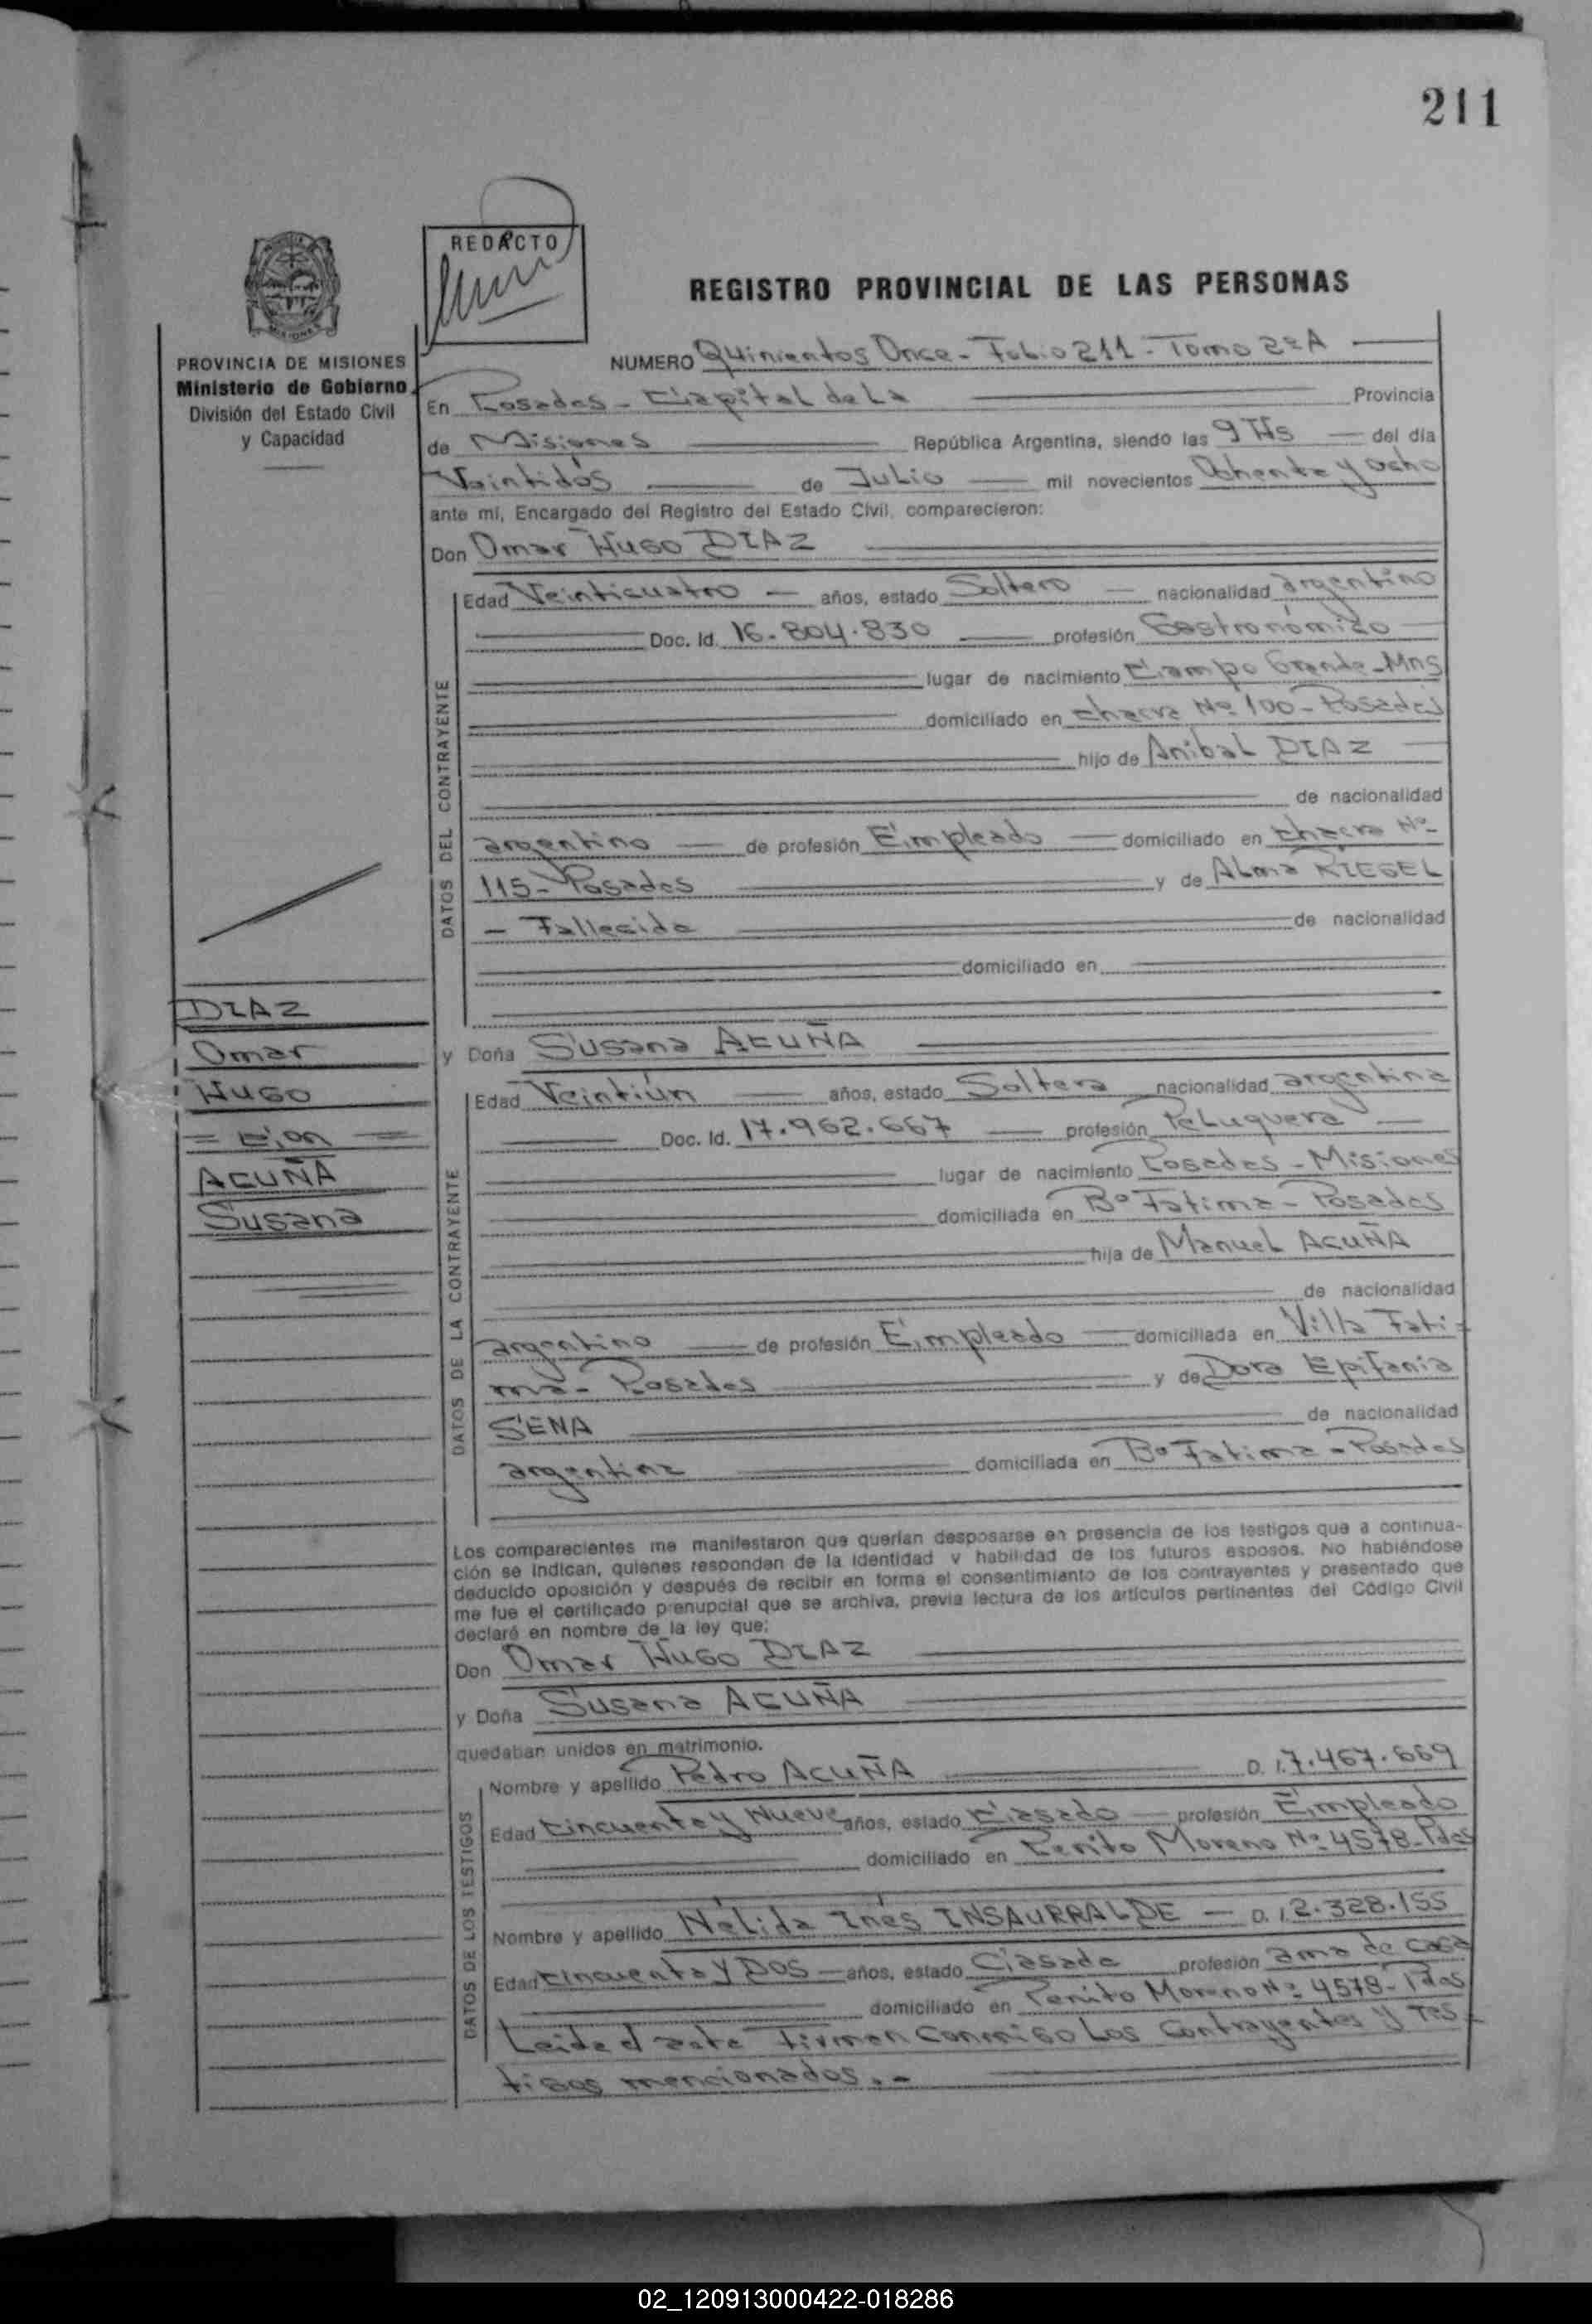 211
REDACTO
REGISTRO PROVINCIAL DE LAS PERSONAS
PROVINCIA DE MISIONES
Ministerio de Gobierno
División del Estado Civil
y Capacidad
NUMERO Quinientos Once - Folio 211 - Tomo 2º A
En Posadas - Capital de La Provincia
de Misiones República Argentina, siendo las 9 Hs del día
Veintidós de Julio mil novecientos Ochenta y ocho
ante mí, Encargado del Registro del Estado Civil, comparecieron:
Don Omar Hugo DIAZ
DATOS DEL CONTRAYENTE
Edad Veinticuatro años, estado Soltero nacionalidad argentino
Doc. Id. 16.804.830 profesión Gastronómico
lugar de nacimiento Campo Grande - Mns
domiciliado en chacra Nº 100 - Posadas
hijo de Anibal DIAZ
de nacionalidad
argentino de profesión Empleado domiciliado en chacra Nº
115 - Posadas y de Alma RIEGEL
- Fallecida de nacionalidad
domiciliado en
y Doña Susana ACUÑA
DATOS DE LA CONTRAYENTE
Edad Veintiún años, estado Soltera nacionalidad argentina
Doc. Id. 17.962.667 profesión Peluquera
lugar de nacimiento Posadas - Misiones
domiciliada en Bº Fatima - Posadas
hija de Manuel ACUÑA
de nacionalidad
argentino de profesión Empleado domiciliada en Villa Fati-
ma - Posadas y de Dora Epifania
SENA de nacionalidad
argentina domiciliada en Bº Fatima - Posadas
DIAZ
Omar
Hugo
= Con =
ACUÑA
Susana
Los comparecientes me manifestaron que querían desposarse en presencia de los testigos que a continua-
ción se indican, quienes responden de la identidad y habilidad de los futuros esposos. No habiéndose
deducido oposición y después de recibir en forma el consentimiento de los contrayentes y presentado que
me fue el certificado prenupcial que se archiva, previa lectura de los artículos pertinentes del Código Civil
declaré en nombre de la ley que:
Don Omar Hugo DIAZ
y Doña Susana ACUÑA
quedaban unidos en matrimonio.
DATOS DE LOS TESTIGOS
Nombre y apellido Pedro ACUÑA D. I. 7.467.669
Edad Cincuenta y Nueve años, estado Casado profesión Empleado
domiciliado en Perito Moreno Nº 4578 - Pdas
Nombre y apellido Nélida Inés INSAURRALDE - D. I. 2.328.155
Edad Cincuenta y Dos años, estado Casada profesión ama de casa
domiciliado en Perito Moreno Nº 4578 - Pdas
Leida el acta Firman Conmigo Los Contrayentes y Tes-
tigos mencionados. -
02_120913000422-018286